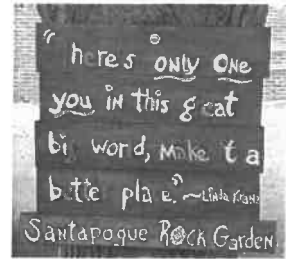 "here's only one
you in this g eat
bi word, make t a
bette pla e." ~Linda Kranz
Santapogue Rock Garden